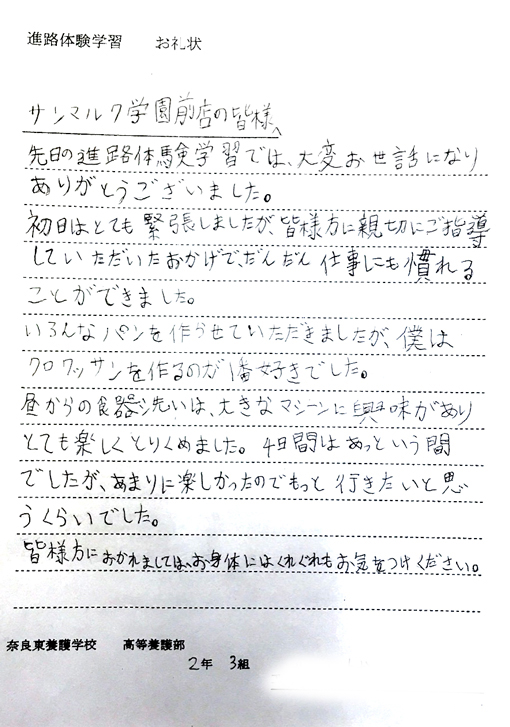 進路体験学習　お礼状
サンマルク学園前店の皆様へ
先日の進路体験学習では、大変お世話になり
ありがとうございました。
初日はとても緊張しましたが、皆様方に親切にご指導
していただいたおかげで、だんだん仕事にも慣れる
ことができました。
いろんなパンを作らせていただきましたが、僕は
クロワッサンを作るのが1番好きでした。
昼からの食器洗いは、大きなマシーンに興味があり
とても楽しくとりくめました。4日間はあっという間
でしたが、あまりに楽しかったのでもっと行きたいと思
うくらいでした。
皆様方におかれましては、お身体にはくれぐれもお気をつけください。
奈良東養護学校　高等養護部
2年　3組